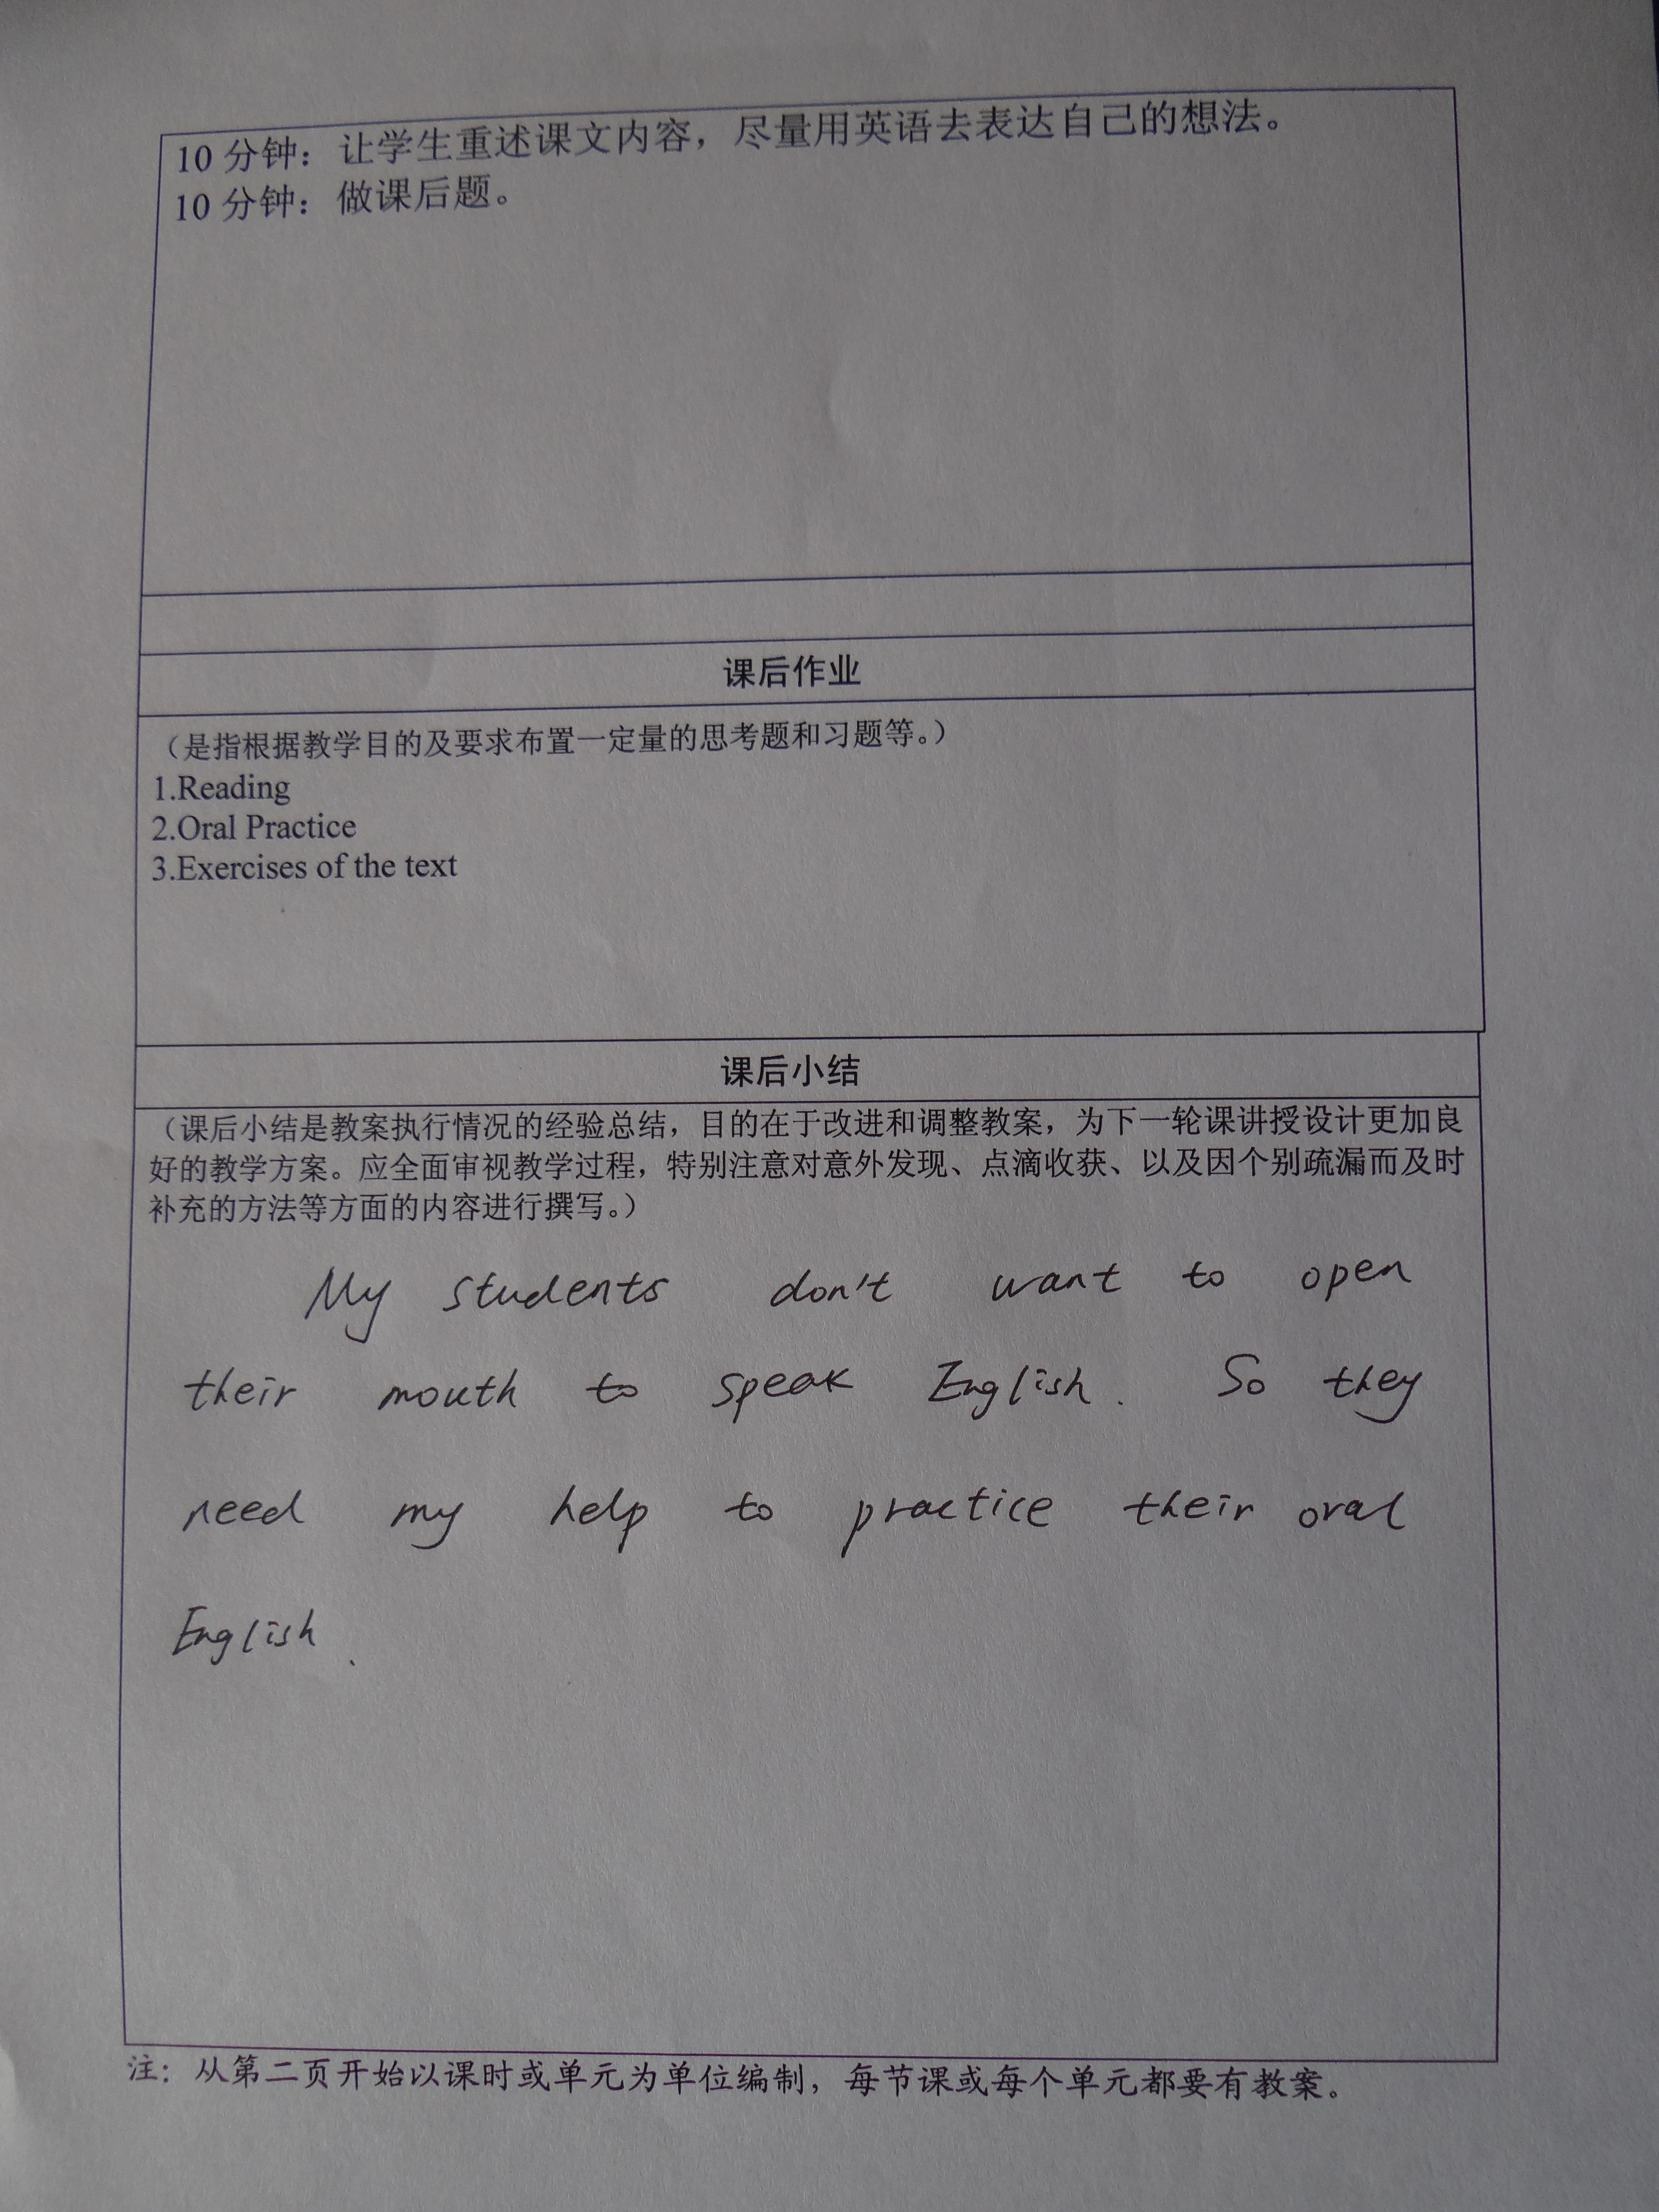 10 分钟：让学生重述课文内容，尽量用英语去表达自己的想法。
10 分钟：做课后题。
课后作业
（是指根据教学目的及要求布置一定量的思考题和习题等。）
1.Reading
2.Oral Practice
3.Exercises of the text
课后小结
（课后小结是教案执行情况的经验总结，目的在于改进和调整教案，为下一轮课讲授设计更加良
好的教学方案。应全面审视教学过程，特别注意对意外发现、点滴收获、以及因个别疏漏而及时
补充的方法等方面的内容进行撰写。）
My students don't want to open
their mouth to speak English. So they
need my help to practice their oral
English.
注：从第二页开始以课时或单元为单位编制，每节课或每个单元都要有教案。